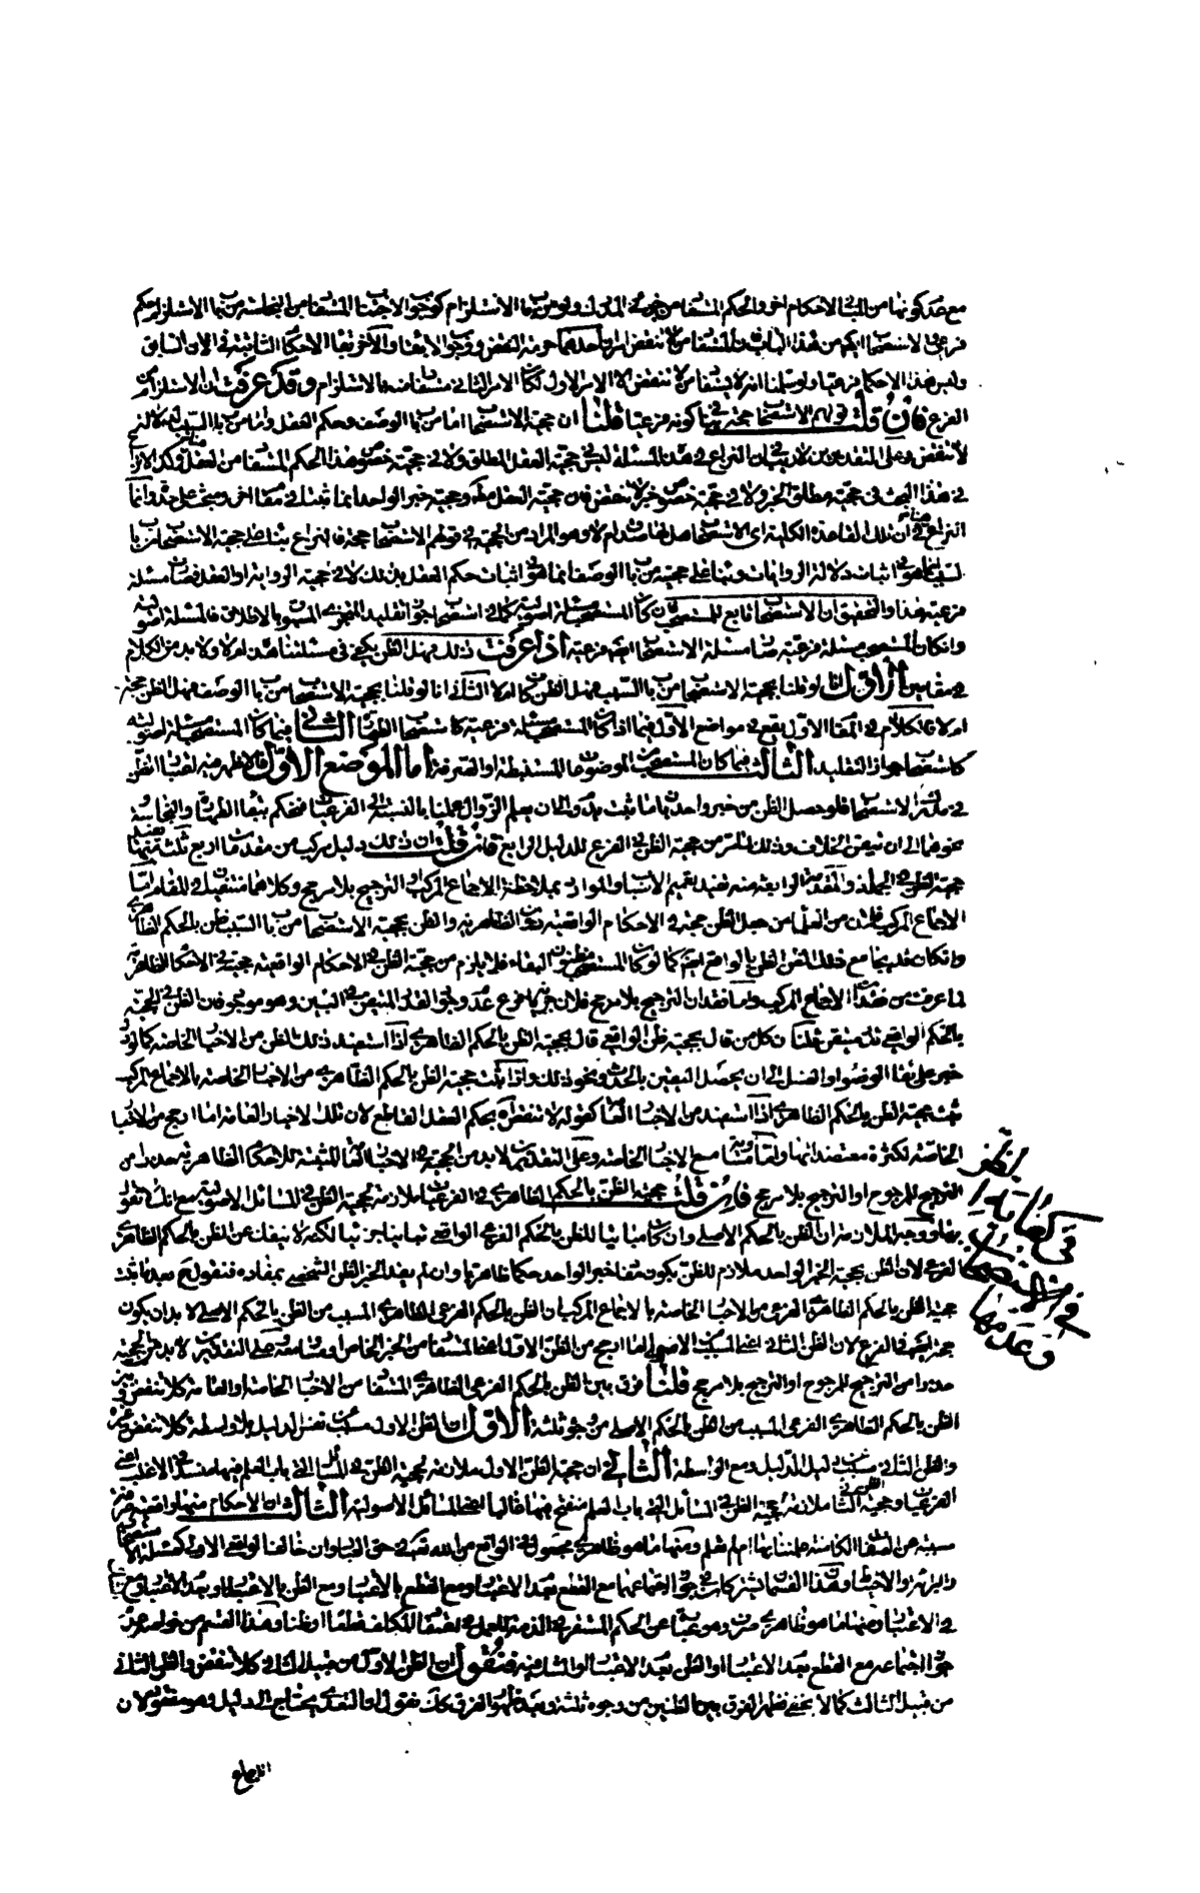 مع عدم كونها من الأحكام اخر والحكم المستفاد من
فرعى الاستصحاب ايضا من هذا الباب لان المستفاد من لا تنقض امران احدهما حرمة النقض ووجوب الابقاء والآخر بقاء الاحكام الثابتة في الآن السابق
وليس هذا الاحكام فرعيا ولو سلمنا انه لا يستفاد من لا تنقض الا الامر الاول لكان الامر الثاني مستفادا منه بالاستلزام وقد عرفت ان الاستلزام من
الفرع فان قلت قولهم الاستصحاب حجة ينافي كونه فرعيا قلنا ان حجية الاستصحاب اما من باب الوصف وحكم العقل واما من باب السبب
لا تنقض وعلى التقديرين لا ريب في ان النزاع في هذه المسئلة ليس في حجية العقل المطلق ولا في حجية خصوص هذا الحكم المستفاد من العقل وكذا لا نزاع
في هذا البحث في حجية مطلق الخبر ولا في حجية خصوص خبر لا تنقض فان حجية العقل وحجية خبر الواحد انما ثبتا في مقام اخر ومبحث على حدة وانما
النزاع في ان تلك القاعدة الكلية اى الاستصحاب هل هنا ثابت ام لا وهو المراد من الحجية في قولهم الاستصحاب حجة فالنزاع في حجية الاستصحاب من باب
السبب انما هو في اثبات دلالة الروايات وبناء على حجيته من باب الوصف انما هو في اثبات حكم العقل بذلك لا في حجية الرواية او العقل فصار مسئلة
فرعية هذا والتحقيق ان الاستصحاب تابع للمستصحب فان كان المستصحب مسئلة اصولية كما في استصحاب جواز تقليد المتجزى المسبوق بالاطلاق فالمسئلة اصولية
وان كان المستصحب مسئلة فرعية صار مسئلة الاستصحاب ايضا فرعية اذا عرفت ذلك فهل الظن يكفى في مسئلتنا هذه ام لا ولا بد من الكلام
في مقامين الاول انا لو قلنا بحجية الاستصحاب من باب السبب فهل الظن كاف ام لا الثاني انا لو قلنا بحجية الاستصحاب من باب الوصف فهل الظن حجة
ام لا فالكلام في المقام الاول يقع في مواضع الاول فيما اذا كان المستصحب مسئلة فرعية كاستصحاب الطهارة الثاني فيما كان المستصحب مسئلة اصولية
كاستصحاب جواز التقليد الثالث فيما كان المستصحب من الموضوعات المستنبطة او الصرفة اما الموضع الاول فالاظهر فيه كفاية الظن
في مدرك الاستصحاب فلو حصل الظن من خبر واحد بان ما ثبت يدوم الى ان يعلم الزوال عملنا به بالنسبة الى الفرعيات فنحكم ببقاء الطهارة والنجاسة
ونحوهما الى ان نتيقن الخلاف وذلك لما مر من حجية الظن في الفرع للدليل الرابع فان قلت ان ذلك دليل مركب من مقدمات اربع ثلث منها تفيد
حجية الظن في الجملة والمقدمة الرابعة منه تفيد تعميم الاسباب والموارد بملاحظة الاجماع المركب او الترجيح بلا مرجح وكلاهما منتفيان في المقام اما
الاجماع المركب فلان من العلماء من جعل الظن حجة في الاحكام الواقعية دون الظاهرية والظن بحجية الاستصحاب من باب السبب ظن بالحكم الظاهرى
وان كان قد يجامع ذلك الظن الظن بالواقع ايضا كما لو كان المستصحب مظنون البقاء فلا يلزم من حجية الظن في الاحكام الواقعية حجيته في الاحكام الظاهرية
لما عرفت من فقد الاجماع المركب واما فقدان الترجيح بلا مرجح فلان جريانه فرع عدم وجود القدر المتيقن في البين وهو موجود فان الظن في الحجية
بالحكم الواقعى قدر متيقن قلنا كل من قال بحجية ظن الواقع قال بحجية الظن بالحكم الظاهرى اذا استفيد ذلك الظن من الاخبار الخاصة كما لو دل
خبر على بقاء الوضوء او الغسل الى ان يحصل اليقين بالحدث ونحو ذلك واذا ثبت حجية الظن بالحكم الظاهرى من الاخبار الخاصة بالاجماع المركب
ثبت حجية الظن بالحكم الظاهرى اذا استفيد من الاخبار العامة كقوله لا تنقض آه بحكم العقل القاطع لان تلك الاخبار العامة اما ارجح من الاخبار
الخاصة لكثرة معتضداتها واما مساوية مع الاخبار الخاصة وعلى التقديرين لا بد من الحجية في الاخبار العامة المثبتة للاحكام الظاهرية حذرا من
الترجيح للمرجوح او الترجيح بلا مرجح فان قلت حجية الظن بالحكم الظاهرى في الفرعيات ملازمة لحجية الظن في المسائل الاصولية مع انك لا تقول
بها ووجه الملازمة ان الظن بالحكم الاصلى وان كان مباينا للظن بالحكم الفرعى الواقعى تباينا جزئيا لكنه لا ينفك عن الظن بالحكم الظاهرى
الفرعى لان الظن بحجية الخبر الواحد ملازم للظن بكون مفاد خبر الواحد حكما ظاهريا وان لم يفد الخبر الظن الشخصى بمفاده فنقول ح بعد ما ثبت
حجية الظن بالحكم الظاهرى الفرعى من الاخبار الخاصة بالاجماع المركب ان الظن بالحكم الفرعى الظاهرى المسبب من الظن بالحكم الاصلى لا بد ان يكون
حجة ايضا في الفرع لان الظن الثاني اعنى المسبب من الاصولى اما ارجح من الظن الاول اعنى المستفاد من الخبر الخاص او مساو معه فعلى التقديرين لا بد من الحجية
حذرا من الترجيح للمرجوح او الترجيح بلا مرجح قلنا فرق بين الظن بالحكم الفرعى الظاهرى المستفاد من الاخبار الخاصة او العامة كلا تنقض وبين
الظن بالحكم الظاهرى الفرعى المسبب من الظن بالحكم الاصلى من وجوه ثلثة الاول ان الظن الاول مسبب عن نفس الدليل بلا واسطة كلا تنقض
والظن الثاني مسبب عن دليل الدليل ومع الواسطة الثاني ان حجية الظن الاول ملازمة لحجية الظن في المسائل التي باب العلم فيها منسد في الاغلب اعنى
الفرعيات وحجية الظن الثاني ملازمة لحجية الظن في المسائل التي باب العلم منفتح فيها غالبا اعنى المسائل الاصولية الثالث ان الاحكام منها واقعية
عن الصفات الكامنة علمنا بها ام لم نعلم ومنها ما هو ظاهرى مجعول في الواقع من الله تعالى في حق العباد وان خالف الواقعى الاولى كمسئلة الاستصحاب
والبرائة والاحتياط وهذان القسمان يشتركان في جواز اجتماعهما مع القطع بعدم الاعتبار ومع القطع بالاعتبار ومع الظن بالاعتبار او بعدم الاعتبار ومع الشك
في الاعتبار ومنها ما هو ظاهرى صرف وهو عبارة عن الحكم المستقر في الذمة للعمل في اعتقاد المكلف قطعا او ظنا وهذا القسم من خواصه عدم
جواز اجتماعه مع القطع بعدم الاعتبار او الظن بعدم الاعتبار او الشك فيه فنقول ان الظن الاول من قبيل الثاني كلا تنقض والظن الثاني
من قبيل الثالث كما لا يخفى فظهر الفرق بين الظنين من وجوه ثلثة وبعد ظهور الفرق كك نقول ان التعدى يحتاج الى دليل وهو مفقود لان
في كفاية الظن
في الاستصحاب
وعدمها
الاجماع